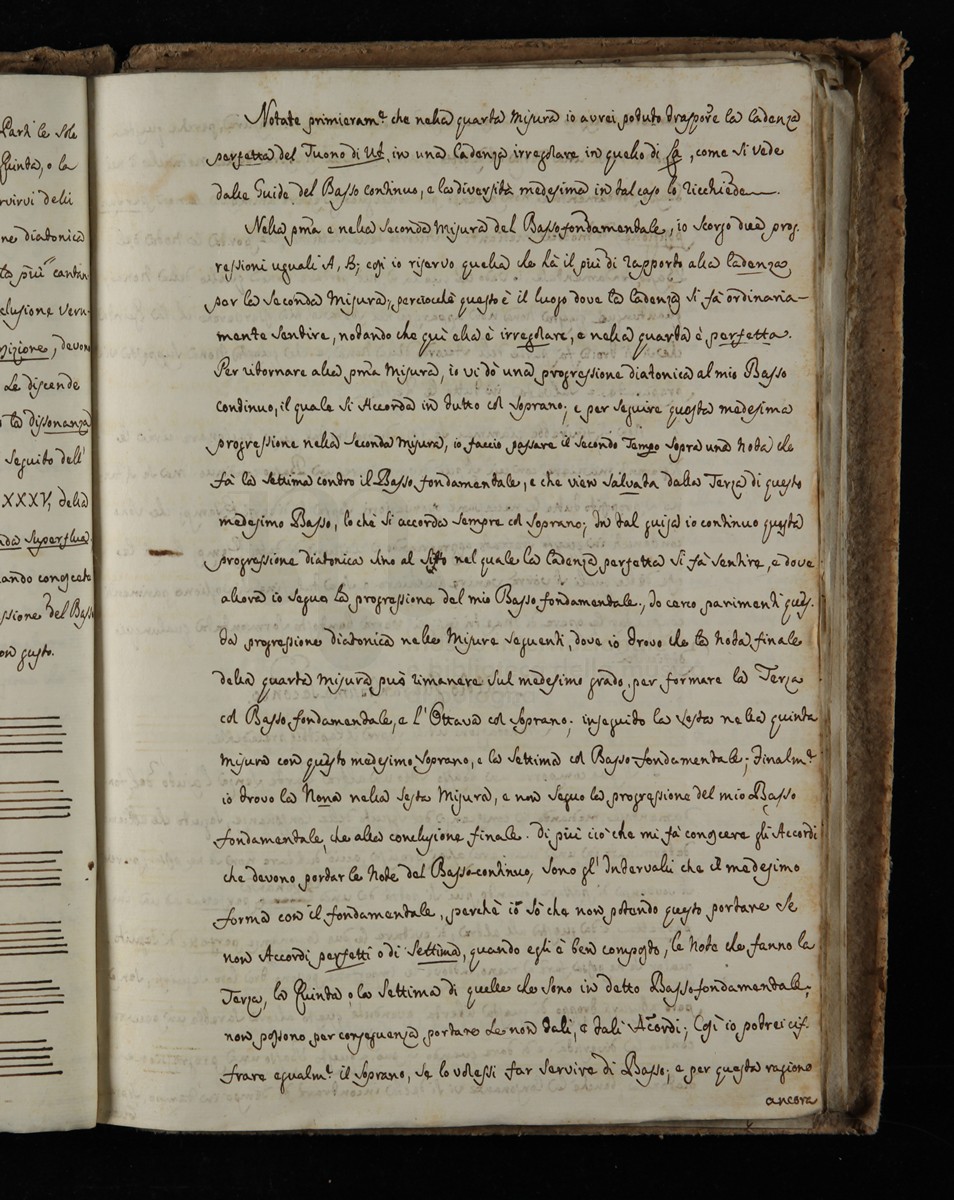 Parti le Sole
Quinta, o la
rvirvi delli
ne diatonica
ta più cantan
clusione veru-
sizione, devon
Le discende
la dissonanza
Seguito dell'
XXXV, della
nda superflua
ando conoscete
ssione del Bass
on gusto.
Notate primieramte. che nella quarta Misura io avrei potuto trasporre la Cadenza
perfetta del Tuono di Ut, in una Cadenza irregolare in quello di fa, come si vede
dalle Guide del Basso continuo, e la diversità medesima in tal caso lo ricchiede.
Nella pma e nella seconda Misura del Basso fondamentale, io scorgo due prog-
ressioni uguali A, B; così io riservo quella che hà il più di rapporto alla Cadenza
per la seconda Misura, perciocchè questo è il luogo dove la Cadenza si fà ordinaria-
mente sentire, notando che quì ella è irregolare, e nella quarta è perfetta.
Per ritornare alla pma Misura, io vi dò una progressione diatonica al mio Basso
continuo, il quale si Accorda in tutto col Soprano; e per seguire questa medesima
progressione nella Seconda Misura, io faccio passare il secondo Tempo sopra una Nota che
fà la settima contro il Basso fondamentale, e che vien salvata dalla Terza di questo
medesimo Basso, lo chè si accorda sempre col Soprano; In tal guisa io continuo questa
progressione diatonica sino al Sito nel quale la Cadenza perfetta si fà sentire, e dove
allora io seguo la progressione del mio Basso fondamentale. Io cerco parimenti ques-
ta progressione diatonica nelle Misure seguenti, dove io trovo che la Nota finale
della quarta Misura può rimanere sul medesimo grado, per formare la Terza
col Basso fondamentale, e l'Ottava col Soprano; inseguito la Sesta nella quinta
Misura con questo medesimo Soprano, e la Settima col Basso fondamentale; Finalmte.
io trovo la Nona nella Sesta Misura, e non seguo la progressione del mio Basso
fondamentale, che alla conclusione finale. Di più ciò che mi fà conoscere gli Accordi
che devono portar le Note del Basso-continuo, sono gl'Intervalli che il medesimo
forma con il fondamentale, perchè io sò che non potendo questo portare se
non Accordi perfetti o di Settima, quando egli è ben composto, le Note che fanno la
Terza, la Quinta o la Settima di quelle che sono in detto Basso fondamentale,
non possono per conseguenza portare se non tali, e tali Accordi; Così io potrei cif-
frare egualmte. il Soprano, se lo volessi far servire di Basso; e per questa ragione
ancora